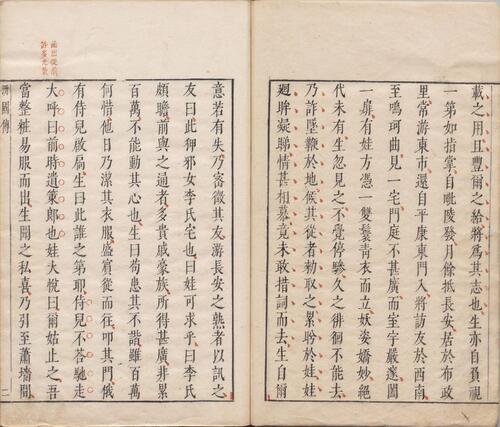 載之用且豐爾之給將爲其志也生亦自負視
一第如指掌自毗陵發月餘抵長安居於布政
里常游東市還自平康東門入將訪友於西南
至鳴珂曲見一宅門庭不甚廣而室宇嚴邃闔
一扉有娃方憑一雙鬟靑衣而立妖姿嬌妙絕
代未有生忽見之不覺停驂久之徘徊不能去
乃詐墜鞭於地候其從者勑取之累眄於娃娃
廻眸凝睇情甚相慕竟未敢措詞而去生自爾
意若有失乃密徵其友游長安之熟者以訊之
友曰此狎邪女李氏宅也曰娃可求乎曰李氏
頗贍前與之通者多貴戚豪族所得甚廣非累
百萬不能動其心也生曰苟患其不諧雖百萬
何惜他日乃潔其衣服盛賓從而往叩其門俄
有侍兒啟扃生曰此誰之第耶侍兒不答馳走
大呼曰前時遺策郎也娃大悅曰爾姑止之吾
當整粧易服而出生聞之私喜乃引至蕭墻間
汧國傳 二